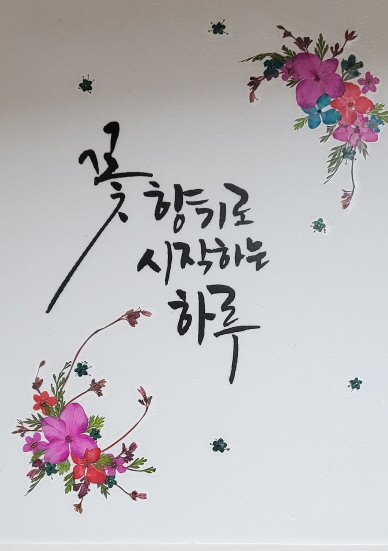 꽃
향기로
시작하는
하루